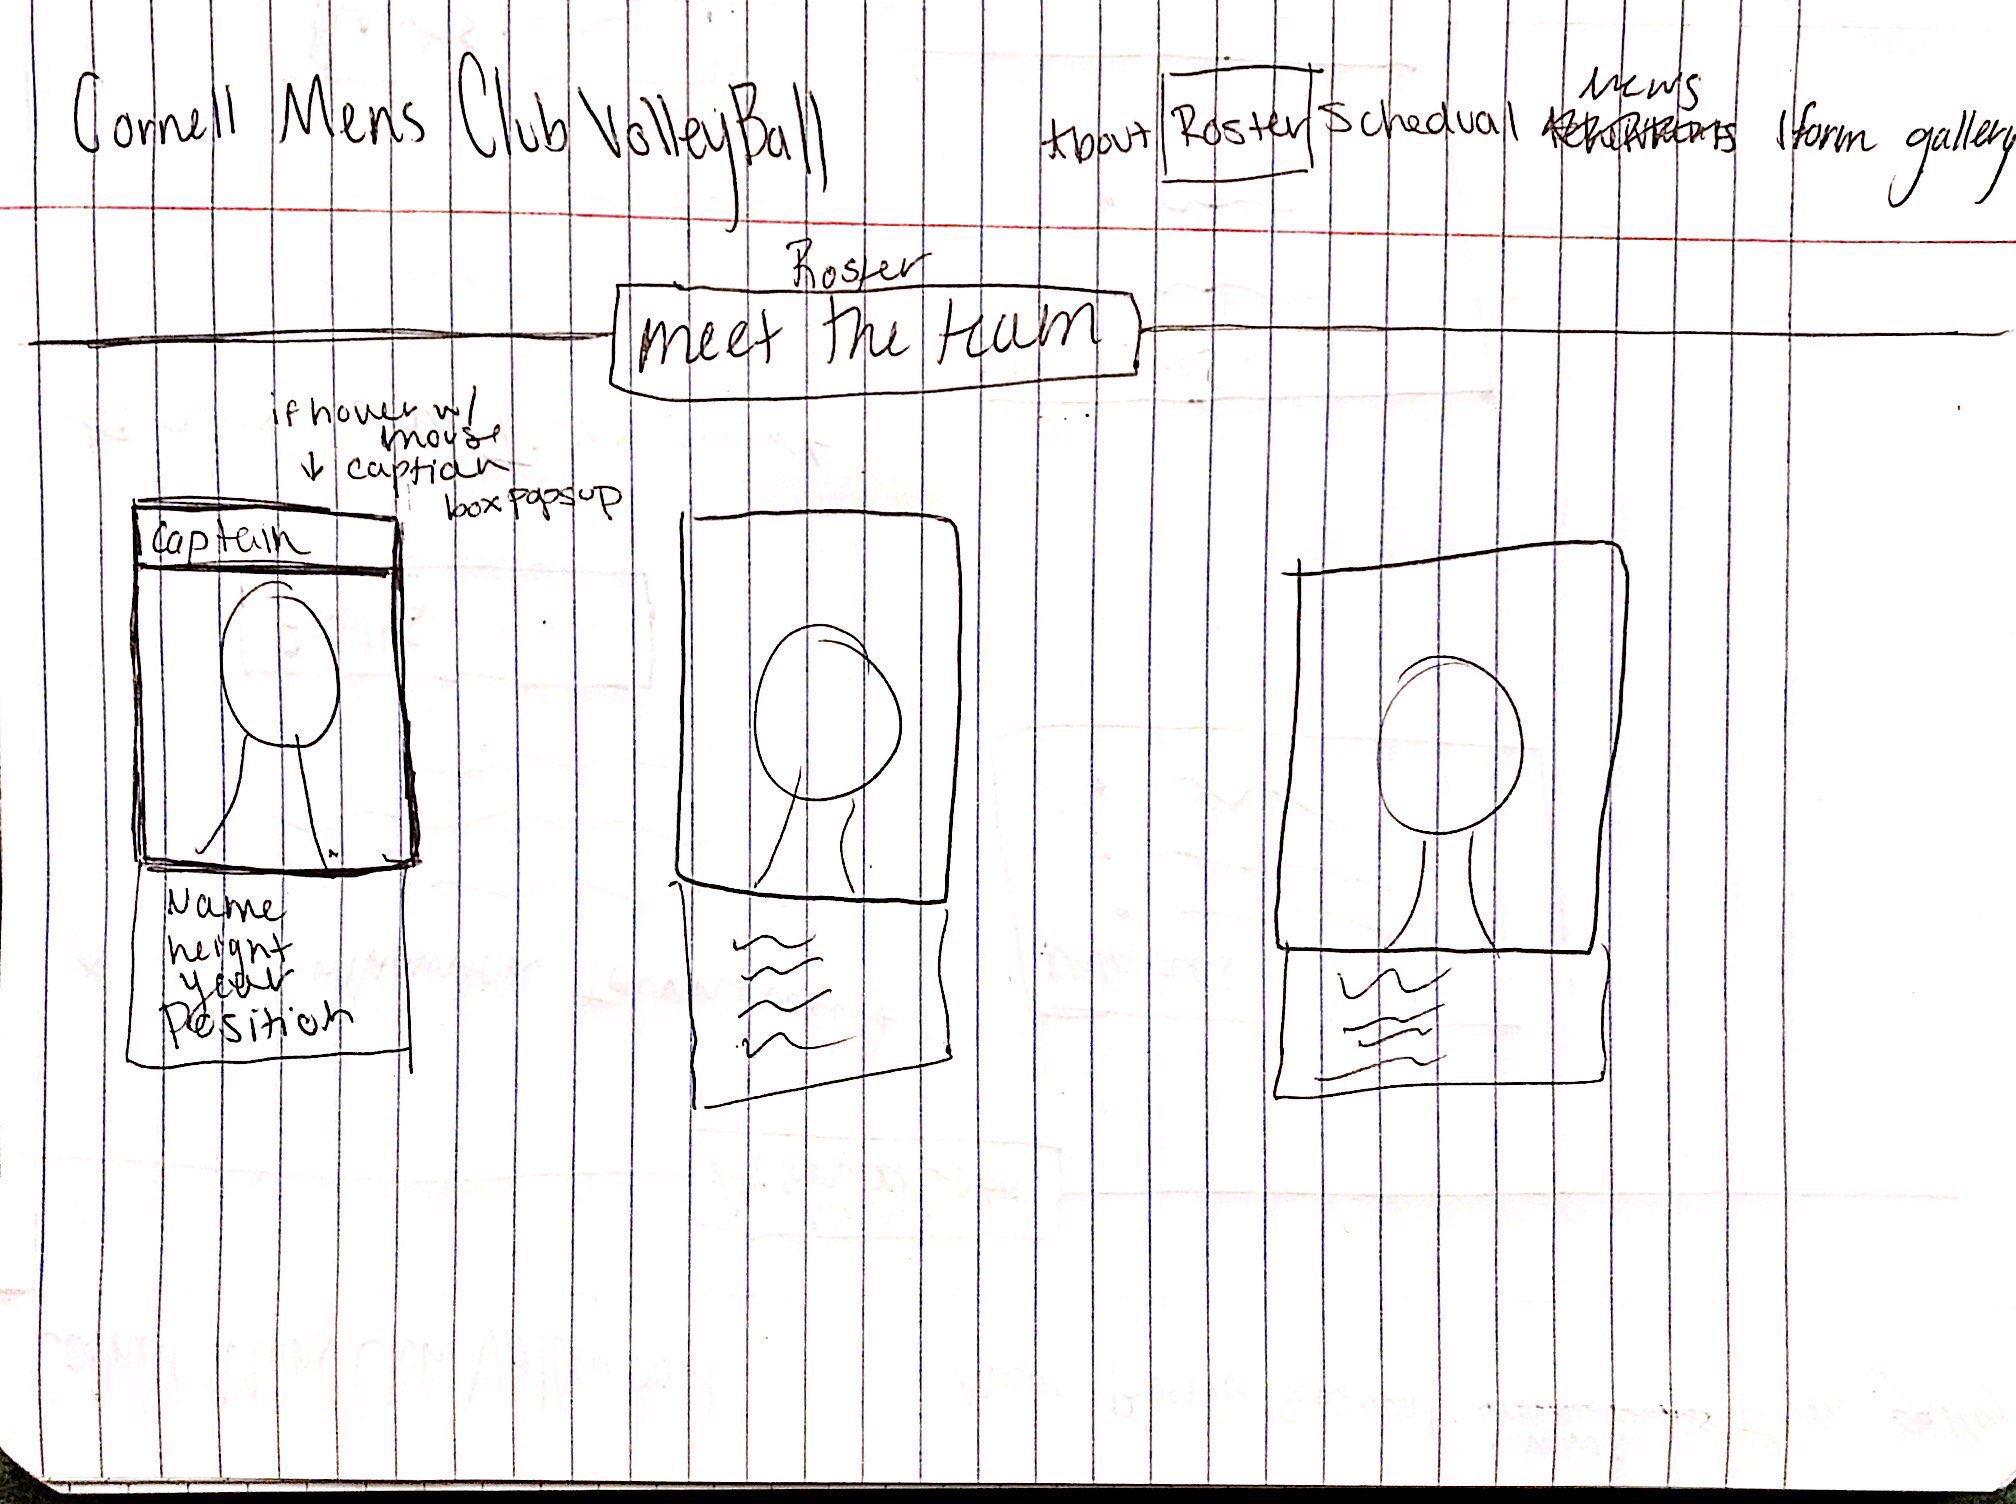 Cornell Mens Club VolleyBall
About Roster Schedual News form gallery
Roster
meet the team
if hover w/
mouse
↓ caption
box popsup
captain
Name
height
year
Position